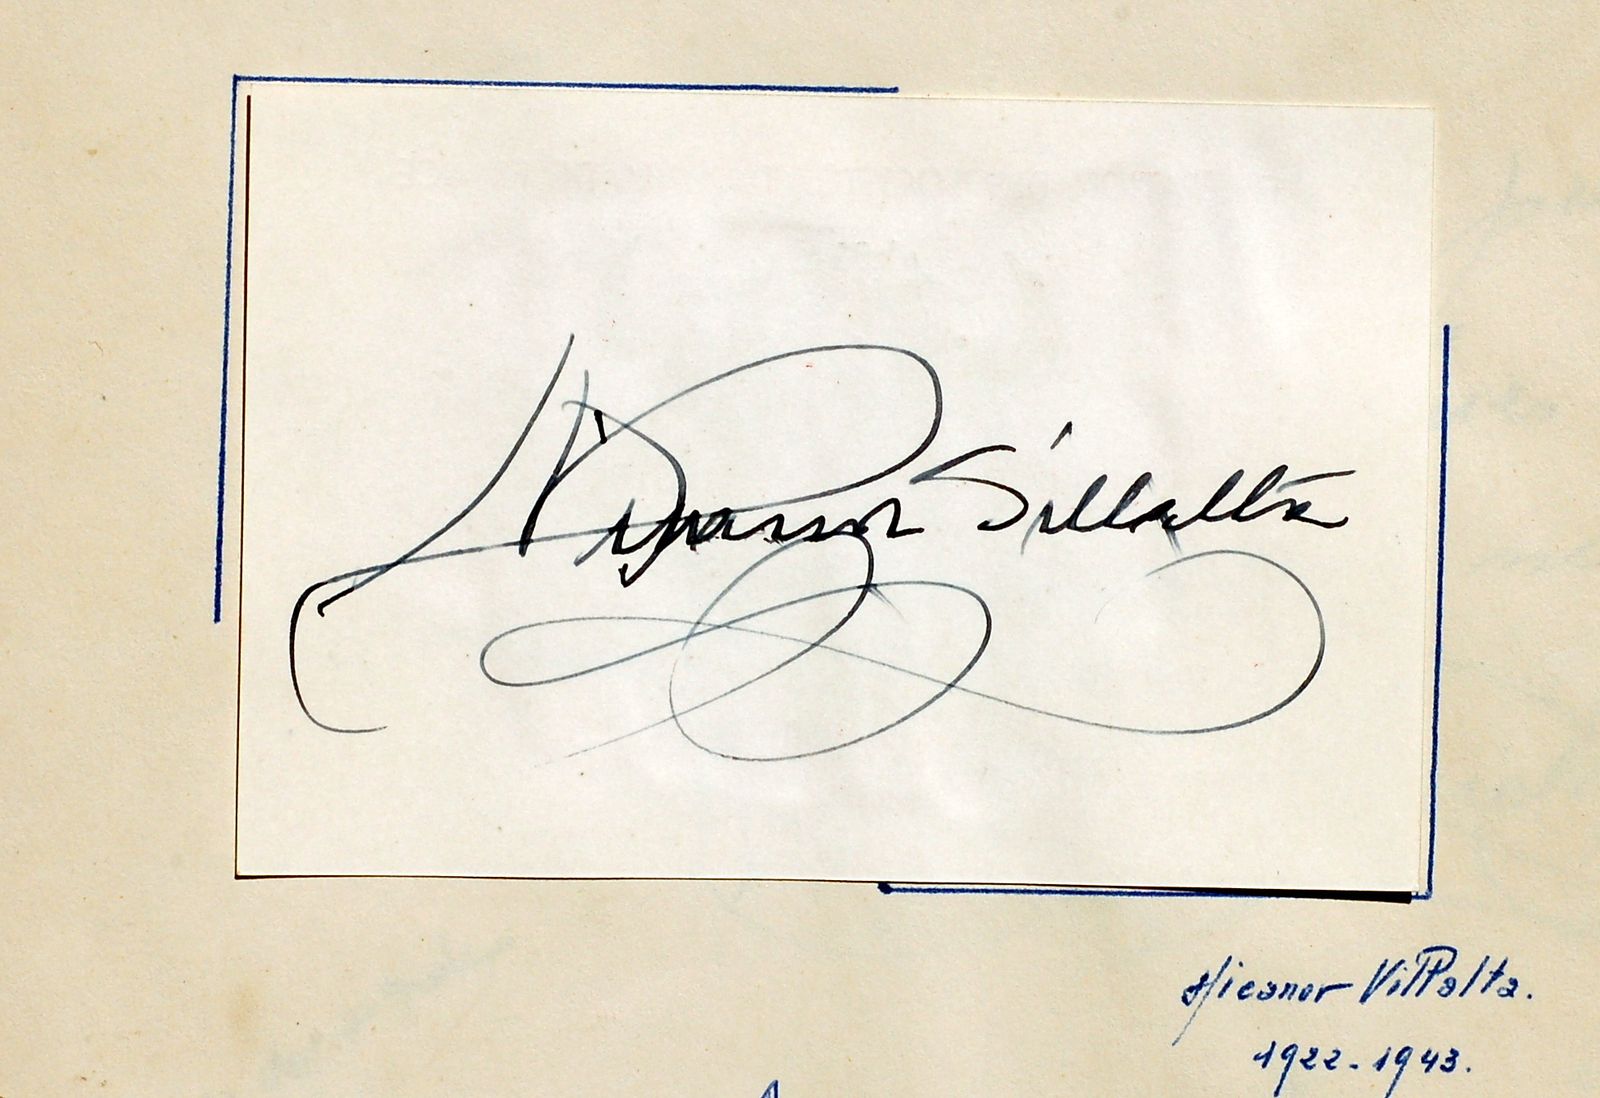 Nicanor Villalta
Nicanor Villalta.
1922-1943.